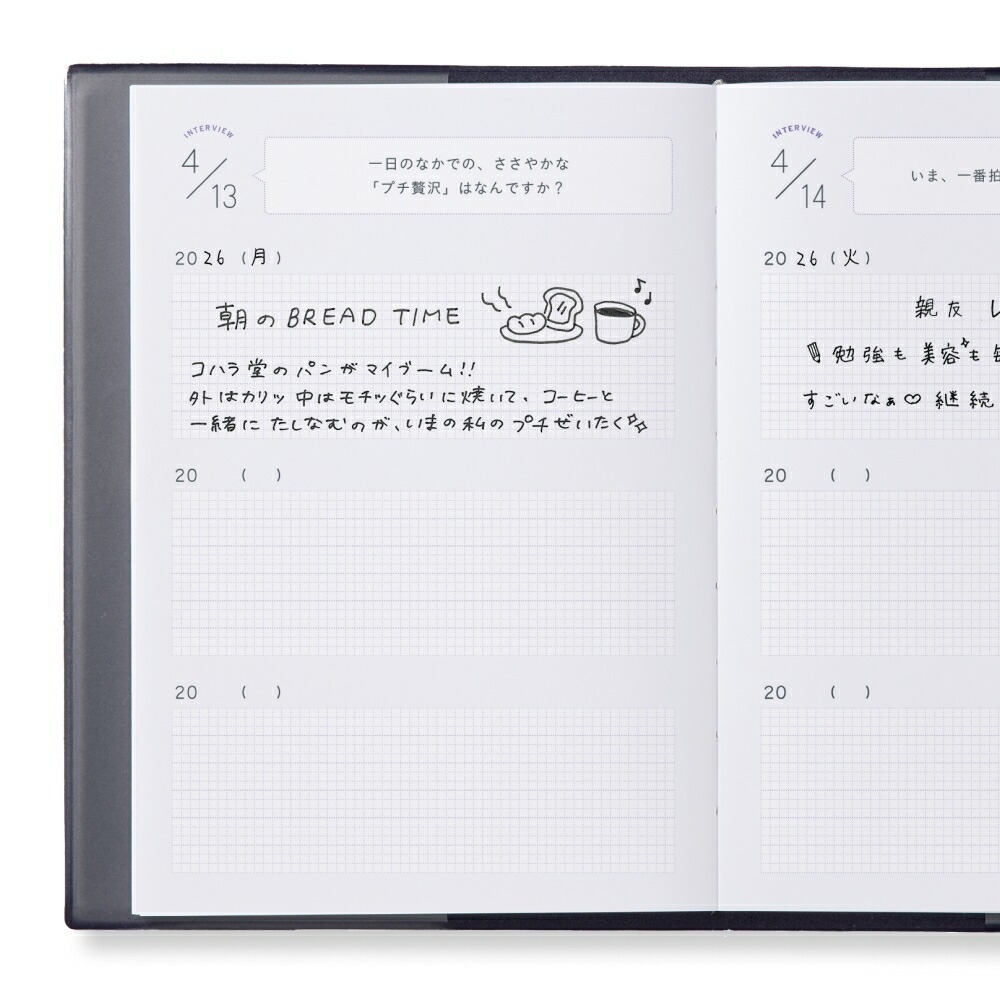 INTERVIEW
4/13
一日のなかでの、ささやかな
「プチ贅沢」はなんですか？
2026（月）
朝のBREAD TIME
コハラ堂のパンがマイブーム!!
外はカリッ 中はモチッぐらいに焼いて、コーヒーと
一緒に たしなむのが、いまの私の プチぜいたく
20　（　）
20　（　）
INTERVIEW
4/14
いま、一番拍
2026（火）
親友 し
勉強も 美容も 毎
すごいなぁ♡ 継続
20　（　）
20　（　）